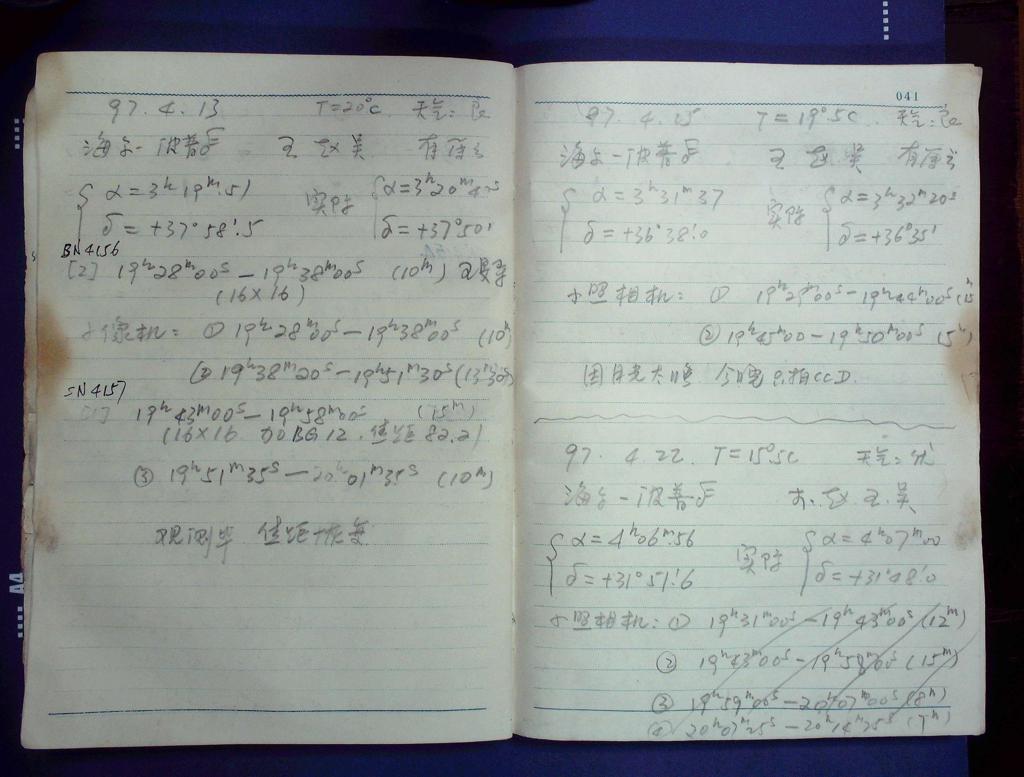 97.4.13 T=20°C 天气:良
海尔-波普 王 赵 吴 有薄云
α=3ʰ19ᵐ.51 实际 α=3ʰ20ᵐ
δ=+37°58'.5 δ=+37°50'
BN4156
[2] 19ʰ28ᵐ00ˢ-19ʰ38ᵐ00ˢ (10ᵐ)
(16×16)
①19ʰ28ᵐ00ˢ-19ʰ38ᵐ00ˢ (10ᵐ)
②19ʰ38ᵐ20ˢ-19ʰ51ᵐ30ˢ(13ᵐ
SN4157
[1] 19ʰ43ᵐ00ˢ-19ʰ58ᵐ00ˢ (15ᵐ)
(16×16 加BG12.焦距82.2)
③19ʰ51ᵐ35ˢ-20ʰ01ᵐ35ˢ (10ᵐ)
观测毕 焦距恢复
041
97.4.15 T=19°.5C 天气:良
海尔-波普 王 赵 吴 有薄云
α=3ʰ31ᵐ37 实际 α=3ʰ32ᵐ20ˢ
δ=+36°38'.0 δ=+36°35'
小照相机:① 19ʰ29ᵐ00ˢ-19ʰ44ᵐ00ˢ(15ᵐ
②19ʰ45ᵐ00-19ʰ50ᵐ00ˢ(5ᵐ)
因月光太 今晚只拍CCD.
97.4.22 T=15°5C 天气:优
海尔-波普 赵.王.吴
α=4ʰ06ᵐ.56 实际 α=4ʰ07ᵐ00
δ=+31°51'.6 δ=+31°48'.0
小照相机:① 19ʰ31ᵐ00ˢ-19ʰ43ᵐ00ˢ(12ᵐ)
② 19ʰ43ᵐ00ˢ-19ʰ58ᵐ00ˢ(15ᵐ)
③ 19ʰ59ᵐ00ˢ-20ʰ07ᵐ00ˢ(8ᵐ)
④ 20ʰ07ᵐ25ˢ-20ʰ14ᵐ25ˢ(7ᵐ)
A4